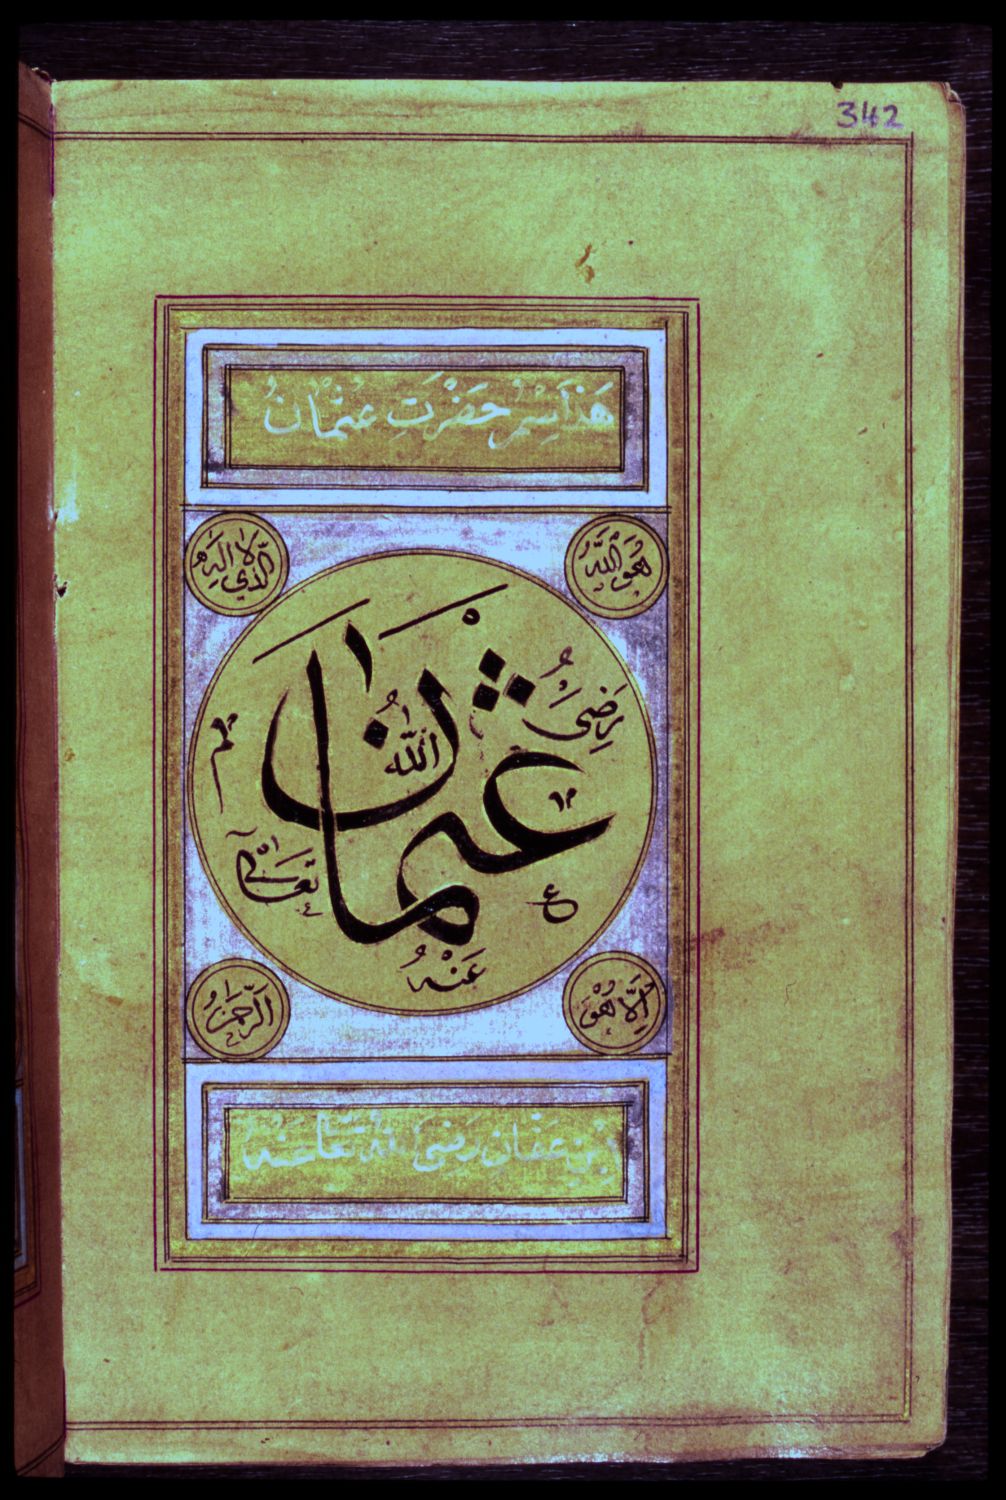 342
هَذَا اِسْمُ حَضْرَتِ عُثْمَانُ
هُوَ اللَّهُ
الَّذِي لَا اِلَهَ
عُثْمَان
رَضِيَ
اللّٰهُ
تَعَالٰى
عَنْهُ
اِلَّا هُوَ
اَلرَّحْمٰنُ
اِبْنِ عَفَّان رَضِيَ اللّٰهُ تَعَا عَنْهُ